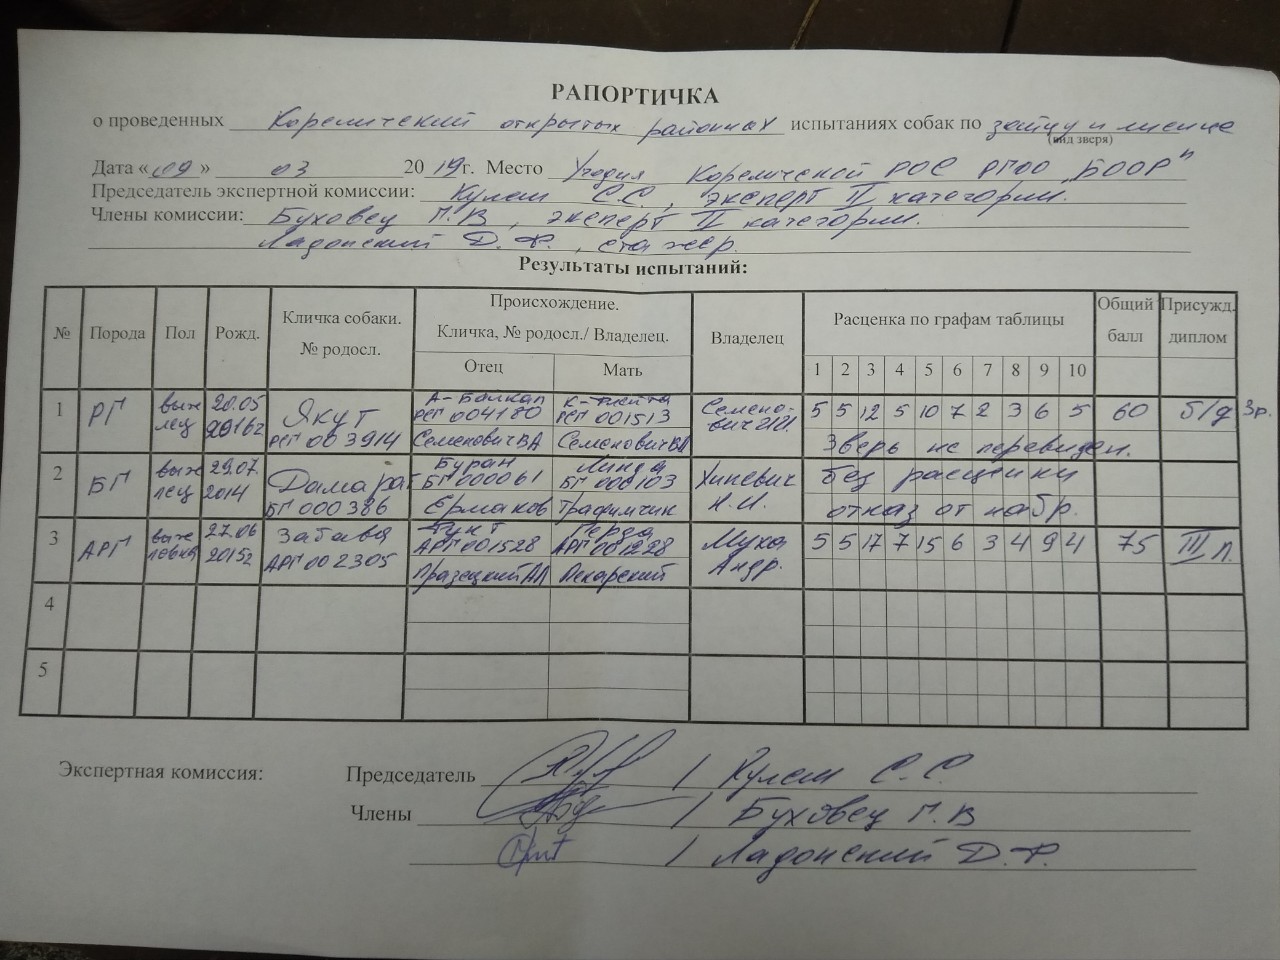 РАПОРТИЧКА
о проведенных Кореличский открытых районных испытаниях собак по зайцу и лисице
(вид зверя)
Дата «09» 03 2019г. Место Угодия Кореличской РОС РГОО „БООР"
Председатель экспертной комиссии: Кулеш С.С., эксперт II категории.
Члены комиссии: Буховец Г.В, эксперт II категории.
Ладонский Д.Ф., стажер.
Результаты испытаний:
№ Порода Пол Рожд. Кличка собаки. № родосл. Происхождение. Кличка, № родосл./ Владелец. Владелец Расценка по графам таблицы Общий балл Присужд. диплом
Отец Мать 1 2 3 4 5 6 7 8 9 10
1 РГ выжлец 20.05 2016г Якут РГ 003914 А-Балкан РГ 004180 Семенович ВА РГ 001513 Семенович ВА Семенович 5 5 12 5 10 7 2 3 6 5 60 б/д Зр.
Зверь не перевиден.
2 БГ выжлец 29.07. 2014 БГ 000386 Буран БГ 000061 Ермаков Линда БГ 000103 Трафимчик Хиневич Н.И. без расценки
отказ от набр.
3 АРГ выжловка 27.06 2015г Забава АРГ 002305 АРГ 001528 Празецкий АЛ Герда АРГ 001228 Пекарский Муха Андр. 5 5 17 7 15 6 3 4 9 4 75 III Л.
4
5
Экспертная комиссия: Председатель / Кулеш С.С.
Члены / Буховец Г.В
/ Ладонский Д.Ф.